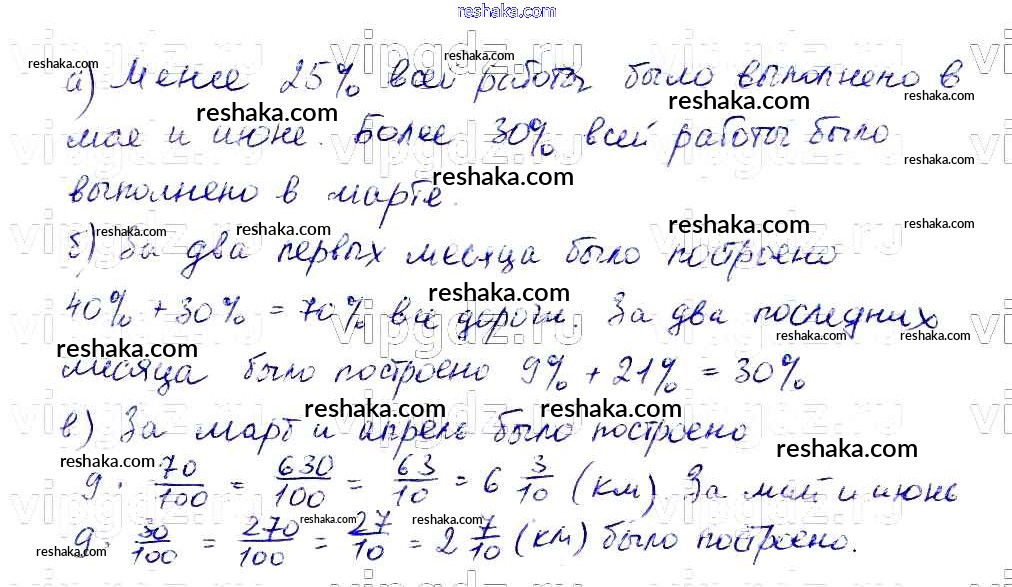 reshaka.com
а) Менее 25% всей работы было выполнено в
мае и июне. Более 30% всей работы было
выполнено в марте.
б) За два первых месяца было построено
40% + 30% = 70% все дороги. За два последних
месяца было построено 9% + 21% = 30%
в) За март и апрель было построено
9 · 70/100 = 630/100 = 63/10 = 6 3/10 (км). За май и июнь
9 · 30/100 = 270/100 = 27/10 = 2 7/10 (км) было построено.